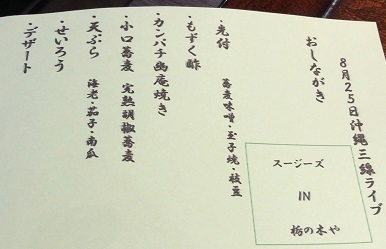 8月25日沖縄三線ライブ
おしながき
・先付　蕎麦味噌・玉子焼・枝豆
・もずく酢
・カンパチ幽庵焼き
・小口蕎麦　完熟胡椒蕎麦
・天ぷら　海老・茄子・南瓜
・せいろう
・デザート
スージーズ
IN
栃の木や